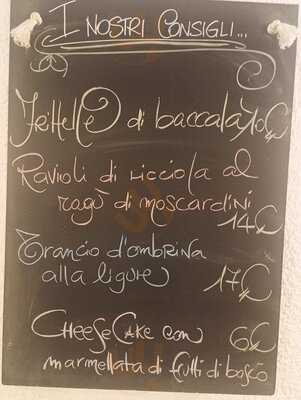 I NOSTRI CONSIGLI...
Frittelle di baccalà 10€
Ravioli di ricciola al
ragù di moscardini
14€
Trancio d'ombrina
alla ligure 17€
CHeeSe CaKe con 6€
marmellata di frutti di bosco